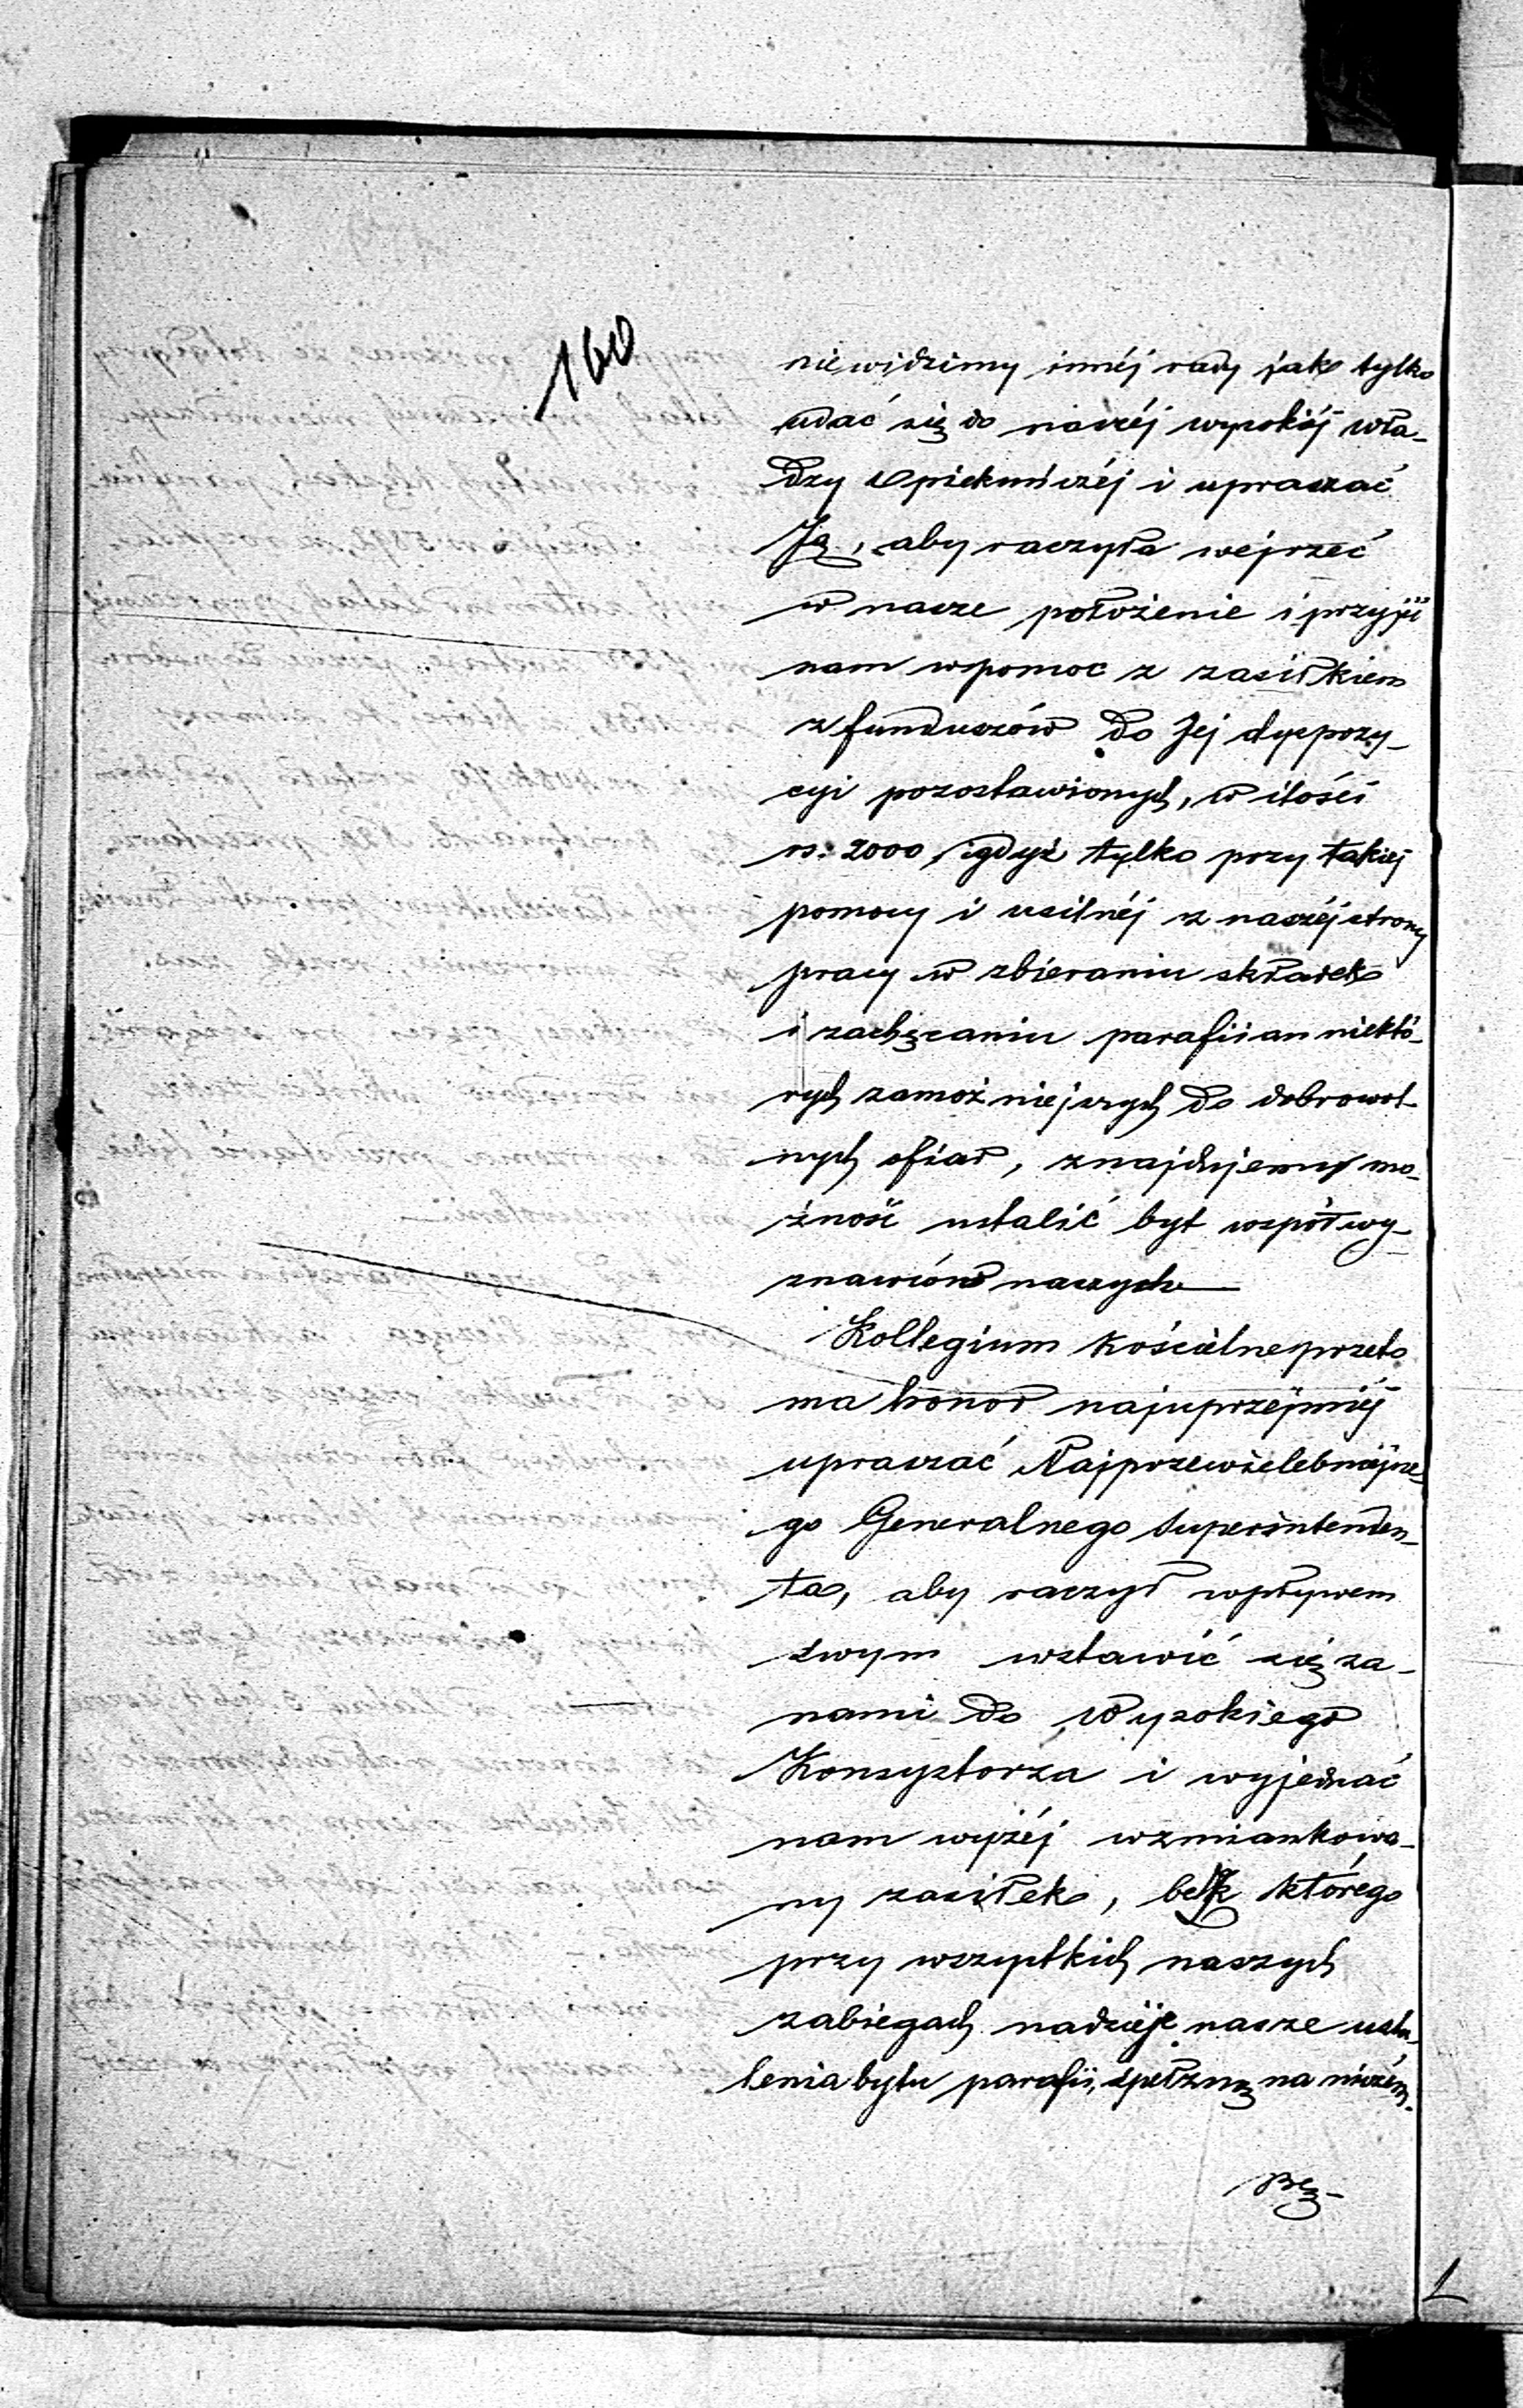 160
niewidzimy innéj rady jak tylko
udać się do naszéj wysokiéj wła-
dzy opiekuńczéj i upraszać
Ją, aby raczyła wejrzeć
w nasze położenie i przyjść
nam w pomoc z zasiłkiem
z funduszów do Jej dyspozy-
cyi pozostawionych, w ilości
rs: 2000, gdyż tylko przy takiej
pomocy i usilnéj z naszéj strony
pracy w zbieraniu składek
i zachęcaniu parafiian niektó-
rych zamożniejszych do dobrowol-
nych ofiar, znajdujemy mo-
żność ustalić byt współwy-
znawców naszych
Kollegium Kościelne przeto
ma honor najuprzejmiéj
upraszać Najprzewielebniejsze-
go Generalnego Superintenden-
ta, aby raczył wpływem
swym wstawić się za-
nami do Wysokiego
Konsystorza i wyjednać
nam wyżéj wzmiankowa-
ny zasiłek, bez którego
przy wszystkich naszych
zabiegach nadzieje nasze usta-
lenia bytu parafii, spełzną na niczém.